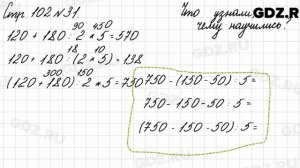 Стр 102 № 31
Что узнали.
Чему научились?
GDZ.RU
90 450
120 + 180 : 2 * 5 = 570
18 10
120 + 180 : (2 * 5) = 138
300 150
(120 + 180) : 2 * 5 = 750
750 - (150 - 50) : 5 =
750 - 150 - 50 : 5 =
(750 - 150 - 50) : 5 =